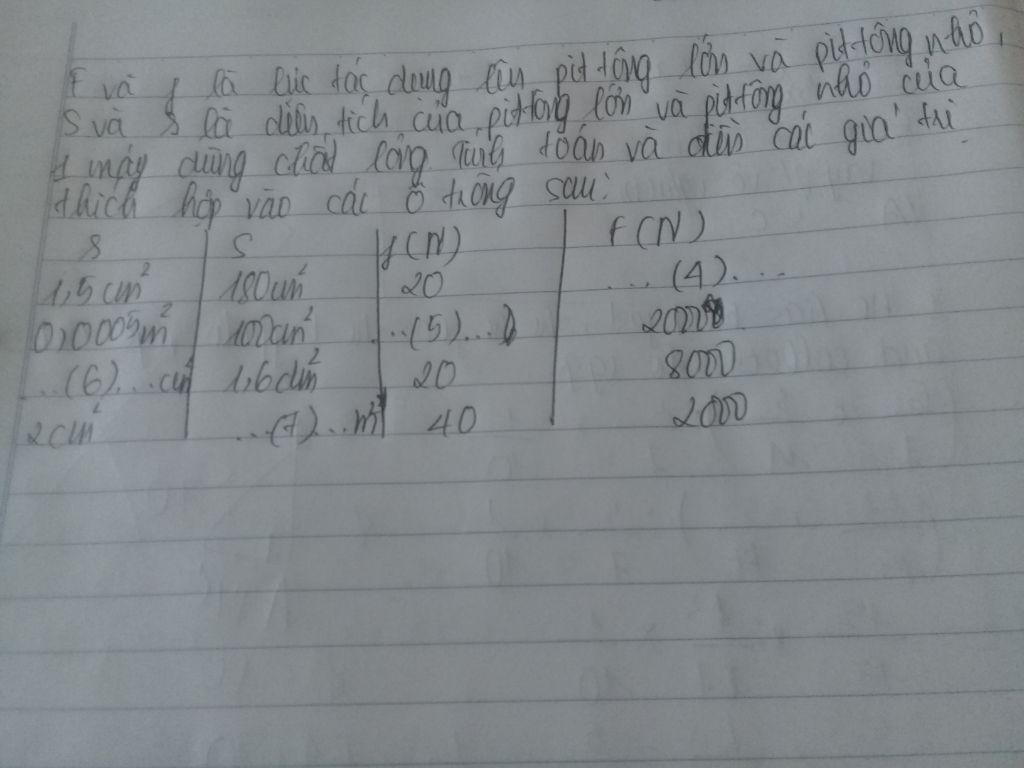 F và f là lực tác dụng lên pit-tông lớn và pit-tông nhỏ,
S và s là diện tích của pit-tông lớn và pit-tông nhỏ của
1 máy dùng chất lỏng Tính toán và điền các giá trị
thích hợp vào các ô trống sau:
s S f(N) F(N)
1,5cm² 180cm² 20 ...(4)...
0,0005m² 100cm² ..(5)...
...(6)...cm² 1,6dm² 20 8000
2cm² ...(7)..m² 40 2000